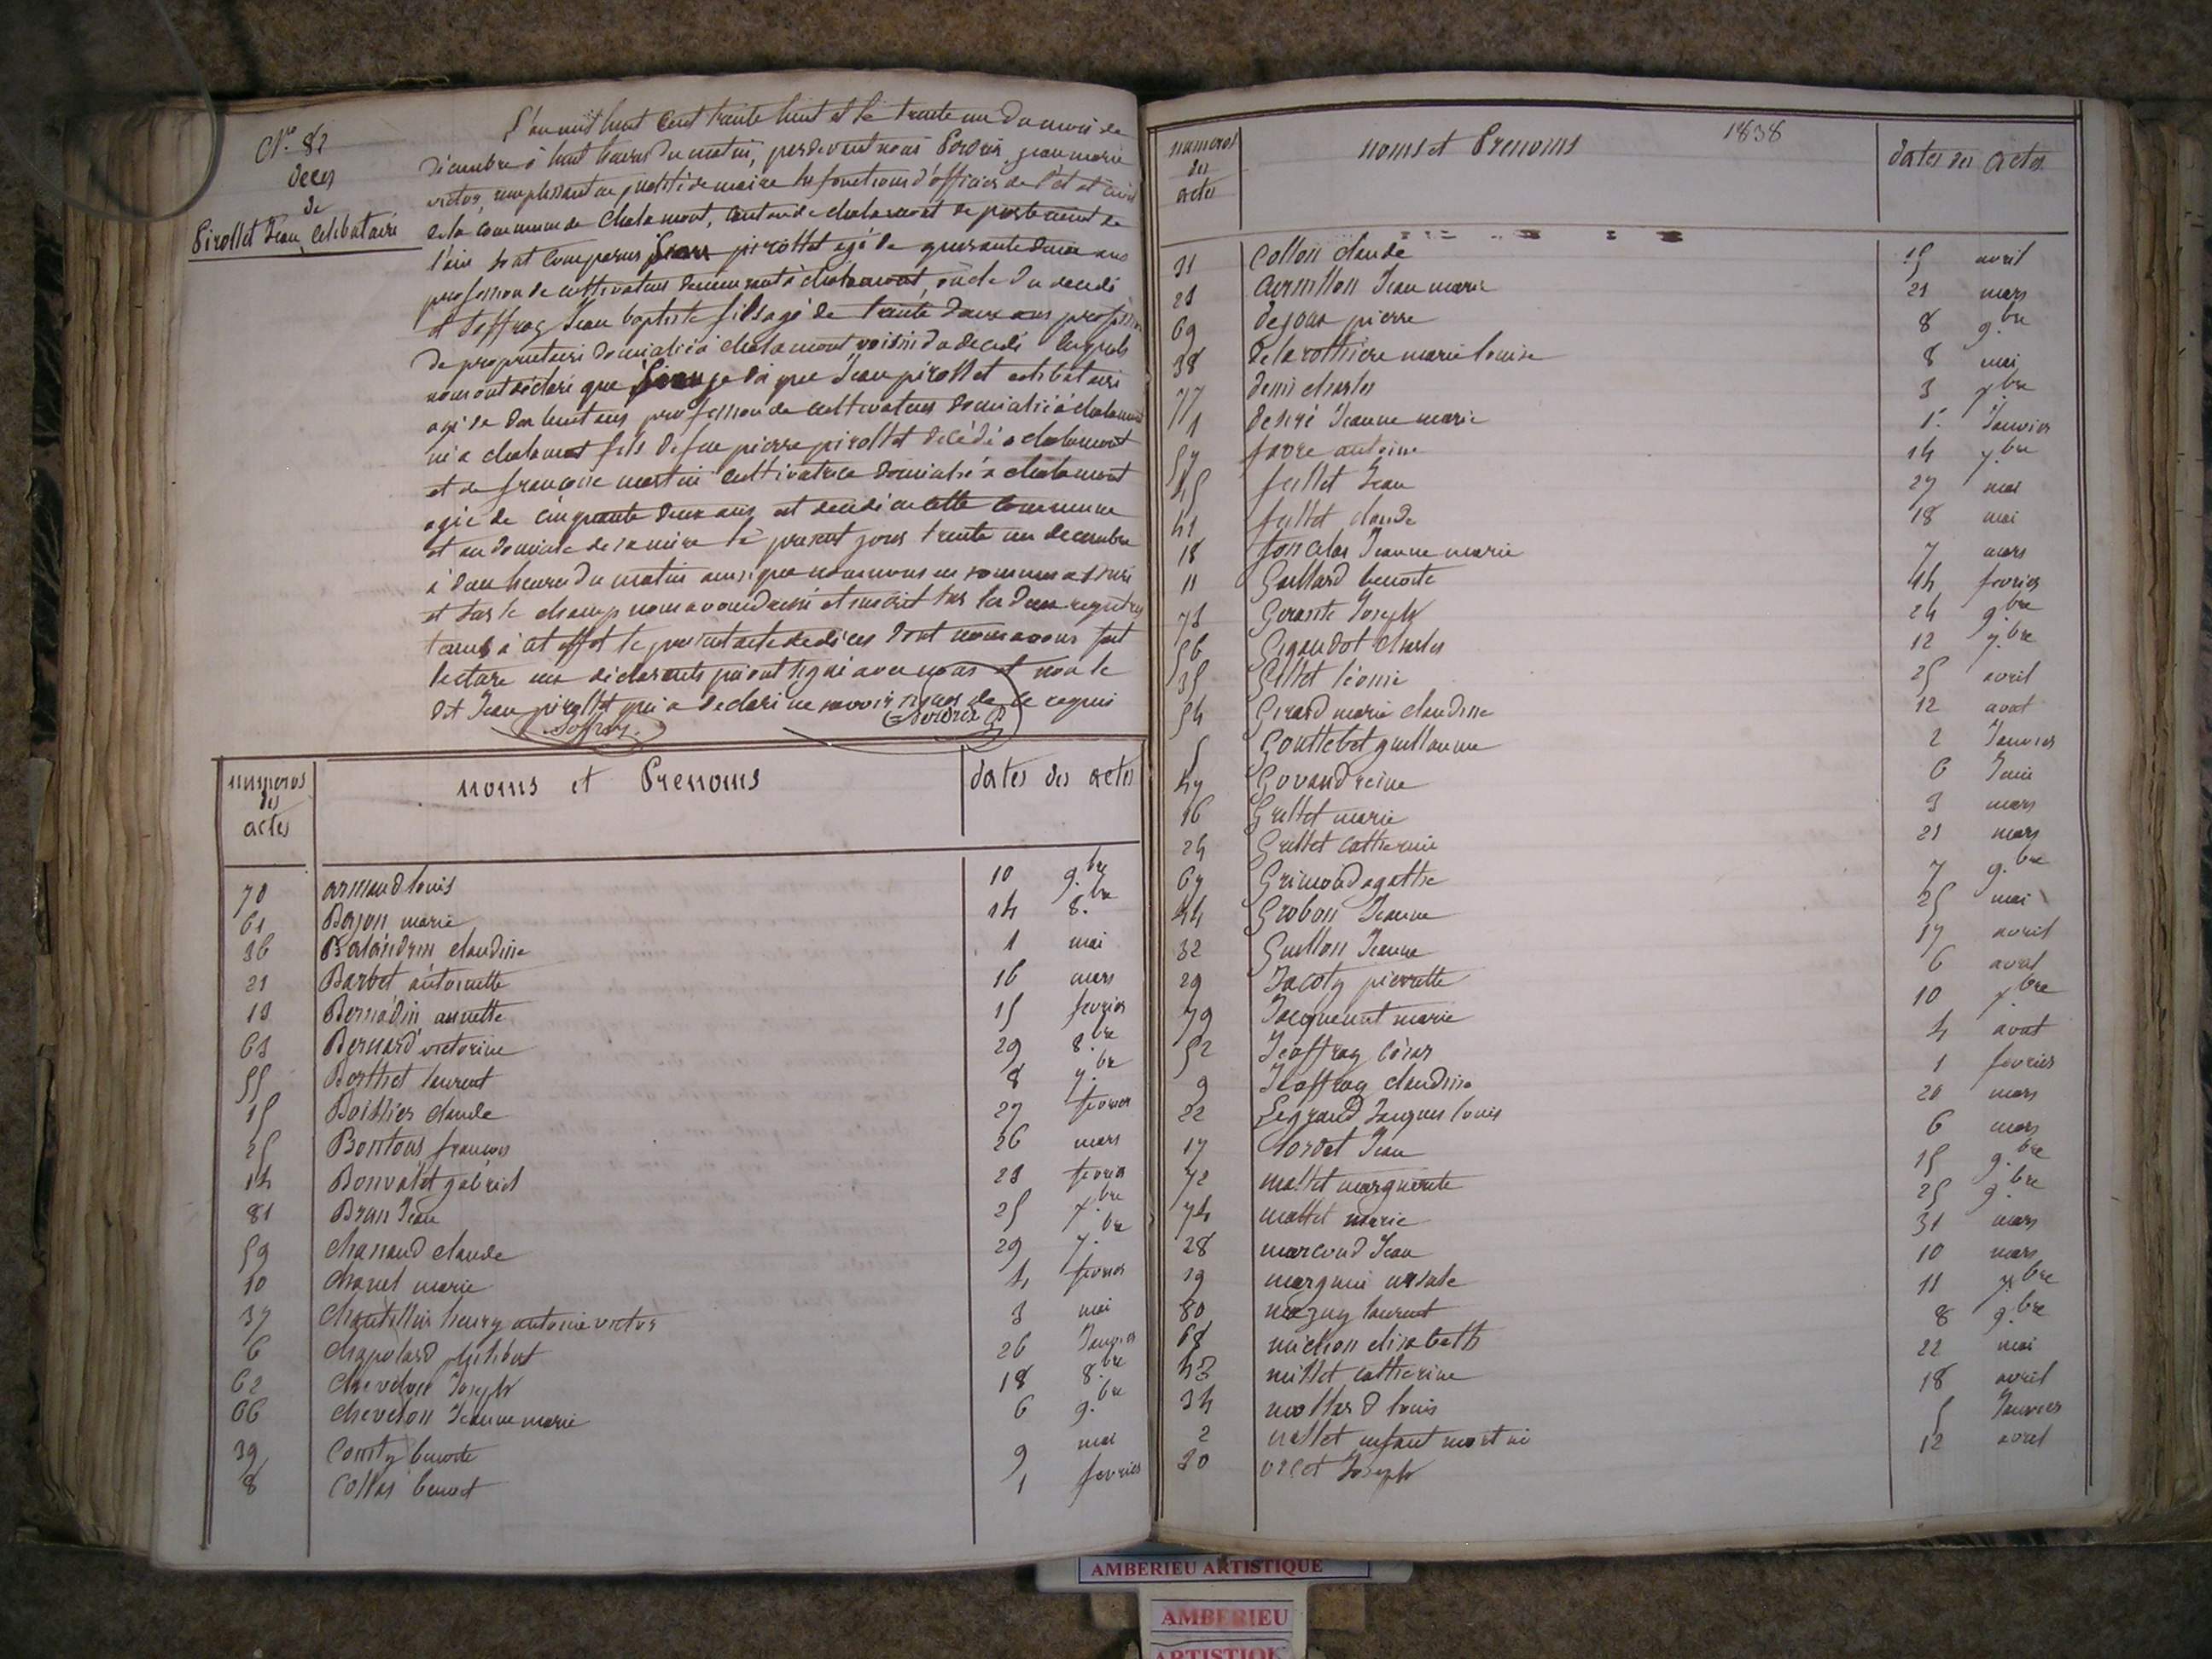 N.º 82
deces
de
Pirollet Jean celibataire
L'an mil huit Cent trente huit et le trente un du mois de
décembre à huit heures du matin, pardevant nous jean marie
victor, remplissant en qualité de maire les fonctions d'officier de l'état civil
de la Commune de Chalamont, Canton de chalamont departement de
l'ain sont Comparus Jean pirollet agé de quarante deux ans
profession de cultivateur demeurant à chalamont, oncle du decedé
et Jeffray Jean baptiste fils agé de trente deux ans profession
de proprietaire domicilié à chalamont voisin du decedé lesquels
nous ont déclaré que je dis que Jean pirollet celibataire
agé de dix huit ans profession de cultivateur domicilié à chalamont
né a chalamont fils de feu pierre pirollet decédé a chalamont
et de françoise martin cultivatrice domiciliée a chalamont
agée de cinquante deux ans est decedé en cette Commune
et au domicile de sa mère le present jour trente un decembre
à deux heures du matin ainsi que nous nous en sommes assuré
et sur le champ nous avons dressé et inscrit sur les deux registres
tenus à cet effet le present acte de décès dont nous avons fait
lecture aux déclarants qui ont signé avec nous et non le
dit Jean pirollet qui a declaré ne savoir signer de ce requis
numeros des actes noms et Prenoms dates des actes
70 armand louis 10 9.bre
61 Bajon marie 14 8.bre
36 Balandrin claudine 1 mai
21 Barbet antoinette 16 mars
13 Bernadin annette 15 fevrier
63 Bernard victorine 29 8.bre
55 Berthet laurent 8 7.bre
15 Boithier claude 27 fevrier
25 Bontous françois 26 mars
14 Bonvalet gabriel 23 fevrier
81 Brun Jean 25 x.bre
59 Chanaud claude 29 7.bre
10 Chanel marie 4 fevrier
37 Chantellier henry antoine victor 3 mai
6 Chapolard philibert 26 Janvier
62 Chevelon Joseph 18 8.bre
66 Chevelon Jeanne marie 6 9.bre
39 Comty benoite 9 mai
8 Collas benoit 1 fevrier
numeros des actes noms et Prenoms 1838 dates des actes
31 Collon claude 15 avril
23 Curnillon Jean marie 21 mars
69 dejoux pierre 8 9.bre
38 Delarothiere marie louise 8 mai
77 denis charles 3 x.bre
1 desiré Jeanne marie 1.er Janvier
57 favre antoine 14 7.bre
45 feillet Jean 27 mai
41 feillet claude 18 mai
18 Jeanne marie 7 mars
11 Gaillard benoite 14 fevrier
73 Gerante Joseph 24 9.bre
56 Gigaudot charles 12 7.bre
35 Gillet léonie 25 avril
54 Girard marie claudine 12 aout
5 Gouttebet guillaume 2 Janvier
47 Govand reine 6 Juin
16 Grillet marie 3 mars
24 Grillet catherine 21 mars
67 Grimond agathe 7 9.bre
44 Grobon Jeanne 25 mai
32 Guillon Jeanne 17 avril
29 Jacoty pierrette 6 avril
79 Jacquemet marie 10 x.bre
52 Jeoffray César 4 aout
9 Jeoffray claudine 1 fevrier
22 Legrand Jacques louis 20 mars
17 Lordet Jean 6 mars
72 mallet marguerite 15 9.bre
74 mallet marie 25 9.bre
28 marcoud Jean 31 mars
19 marguin ursule 10 mars
80 mazuy laurent 11 x.bre
68 michon elisabeth 8 9.bre
43 millet catherine 22 mai
34 mollard louis 18 avril
2 enfant mort né 5 Janvier
30 Joseph 12 avril
AMBERIEU ARTISTIQUE
AMBERIEU
ARTISTIQUE